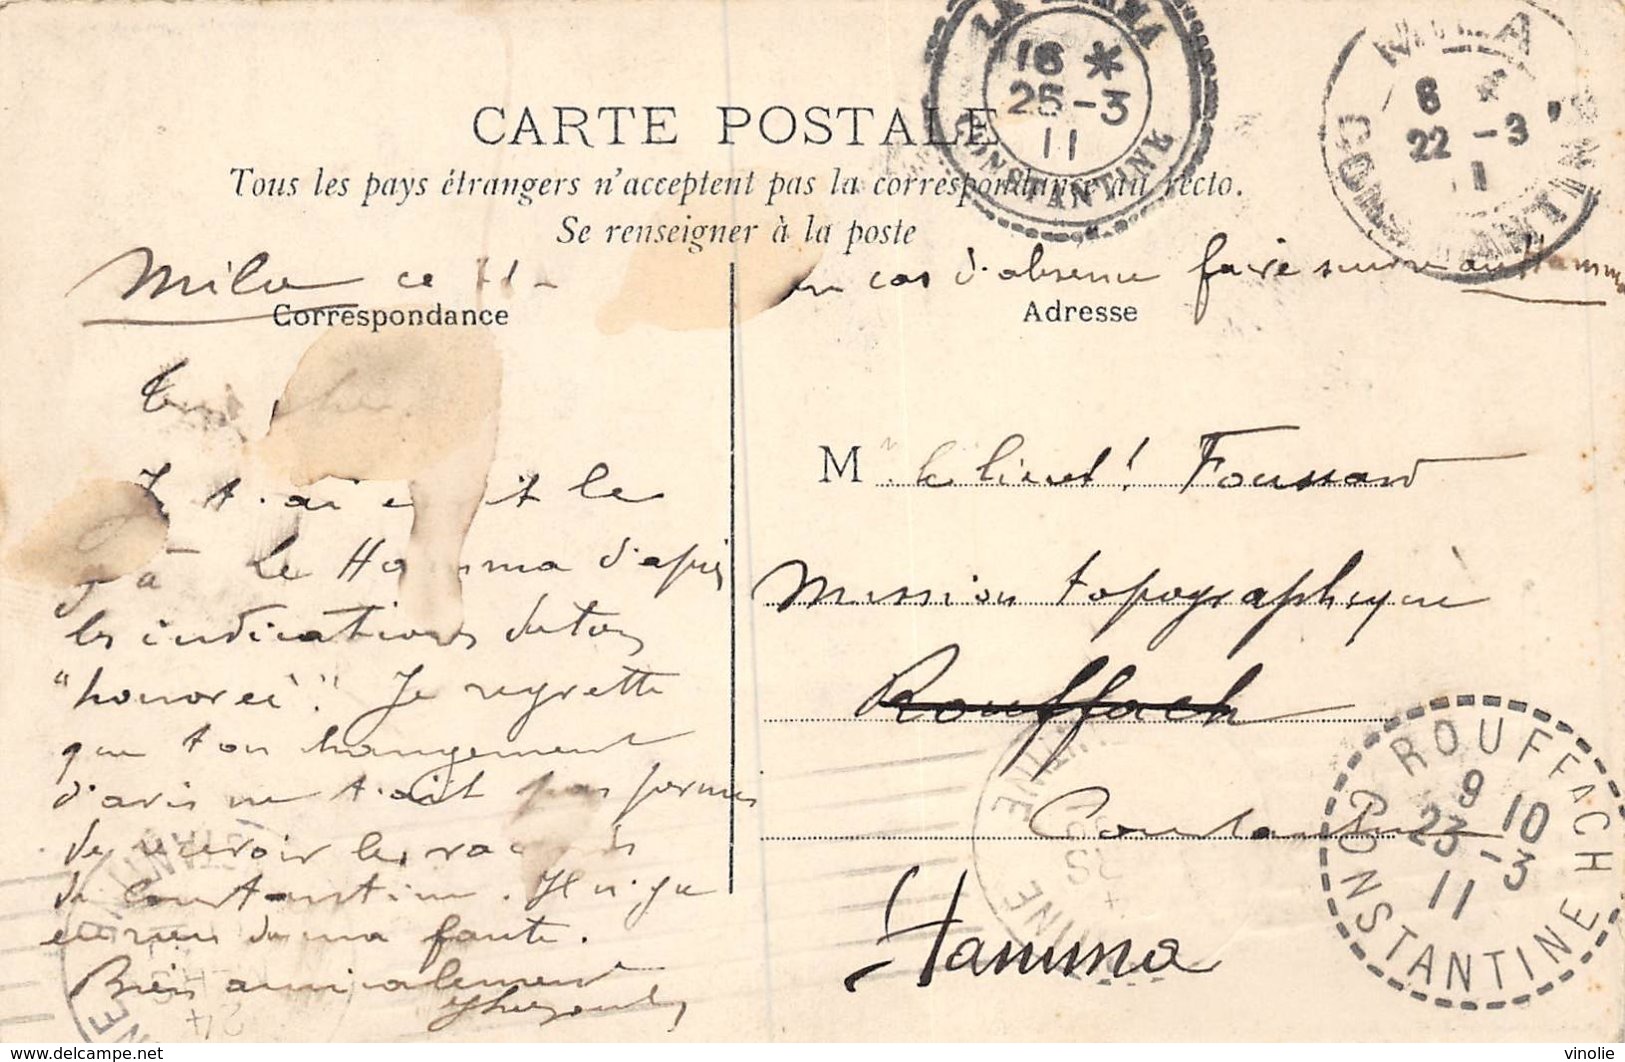 CARTE POSTALE
Tous les pays étrangers n'acceptent pas la correspondance au recto.
Se renseigner à la poste
LE HAMMA
16 *
25 -3
11
CONSTANTINE
MILA
6
22 -3
11
CONSTANTINE
Mila ce 21-
Correspondance
cas d'absence faire suivre au Hamma
Adresse
Mon cher
Je t'ai écrit le
à Le Hamma d'après
les indications de ton
"honorée". Je regrette
que ton changement
d'avis ne t'ait pas permis
de recevoir les
de Constantine. Il n'y a
eu rien de ma faute.
Bien amicalement
M le Lieut! Foussard
Mission topographique
Rouffach
Constantine
Hamma
ROUFFACH
9 10
23 -3
11
CONSTANTINE
www.delcampe.net
vinolie